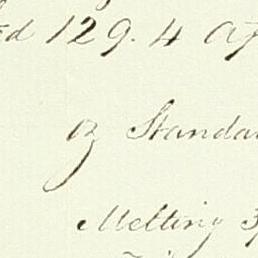 129.4
oz Standa
Melting 3